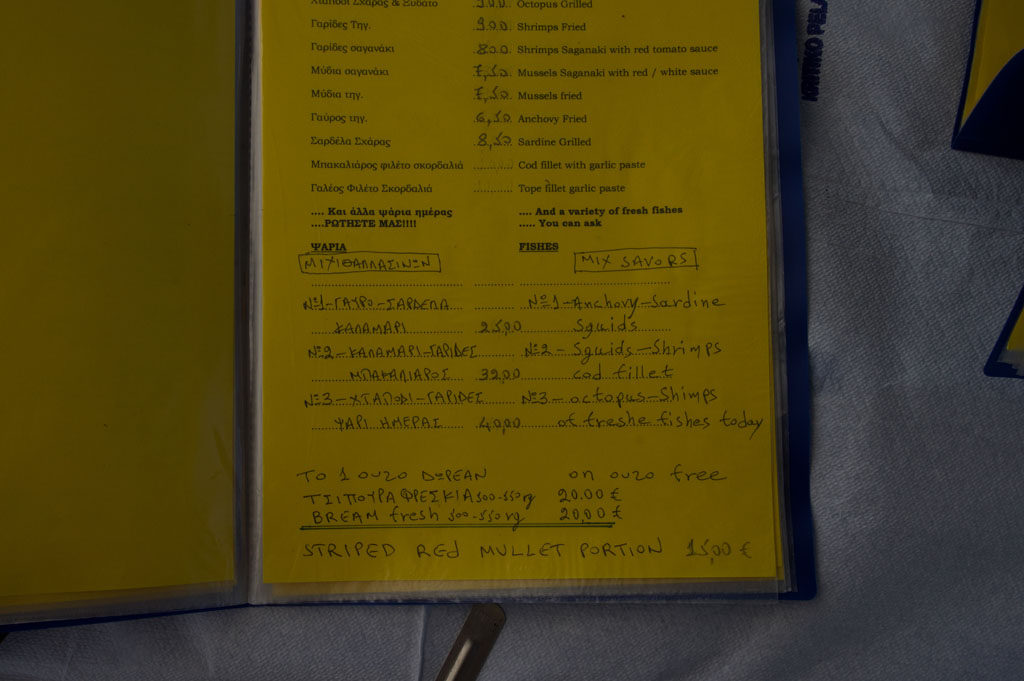 Χταπόδι Σχάρας & Ξυδάτο 9.00 Octopus Grilled
Γαρίδες Τηγ. 9.00 Shrimps Fried
Γαρίδες σαγανάκι 8.00 Shrimps Saganaki with red tomato sauce
Μύδια σαγανάκι 7,50 Mussels Saganaki with red / white sauce
Μύδια τηγ. 7,50 Mussels fried
Γαύρος τηγ. 6,50 Anchovy Fried
Σαρδέλα Σχάρας 8,50 Sardine Grilled
Μπακαλιάρος φιλέτο σκορδαλιά ............ Cod fillet with garlic paste
Γαλέος Φιλέτο Σκορδαλιά ............ Tope fillet garlic paste
.... Και άλλα ψάρια ημέρας .... And a variety of fresh fishes
....ΡΩΤΗΣΤΕ ΜΑΣ!!!! ..... You can ask
ΨΑΡΙΑ FISHES
ΜΙΧΙΘΑΛΛΑΣΙΝΩΝ MIX SAVORS
Νο1-ΓΑΥΡΟ-ΣΑΡΔΕΛΑ No1-Anchovy-Sardine
ΚΑΛΑΜΑΡΙ 25,00 Sguids
Νο2-ΚΑΛΑΜΑΡΙ-ΓΑΡΙΔΕΣ No2-Sguids-Shrimps
ΜΠΑΚΑΛΙΑΡΟΣ 32,00 cod fillet
Νο3-ΧΤΑΠΟΔΙ-ΓΑΡΙΔΕΣ No3-octopus-Shimps
ΨΑΡΙ ΗΜΕΡΑΣ 40,00 of freshe fishes today
ΤΟ 1 ΟΥΖΟ ΔΩΡΕΑΝ on ουzo free
ΤΣΙΠΟΥΡΑ ΦΡΕΣΚΙΑ 500-550 rg 20.00 €
BREAM fresh 500-550 rg 20,00 €
STRIPED REd MULLET PORTION 15,00 €